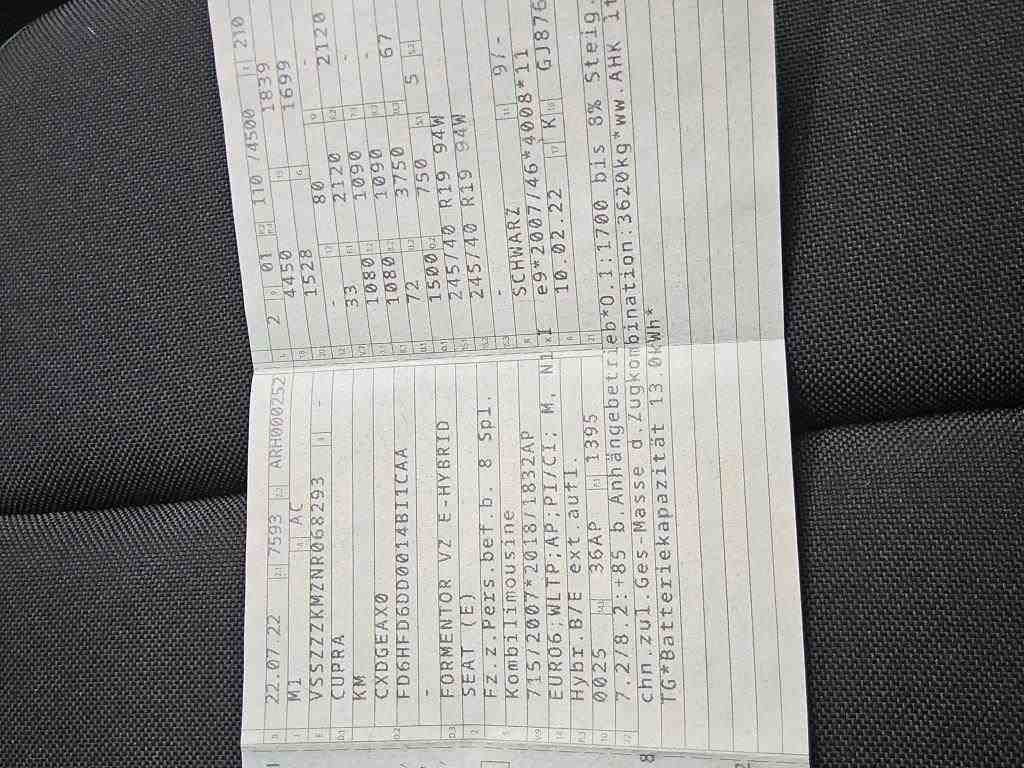 22.07.22 2.1 7593 2.2 ARH000252
M1 4 AC
VSSZZZKMZNR068293 3 -
CUPRA
KM
CXDGEAX0
FD6HFD6DD0014B11CAA
-
FORMENTOR VZ E-HYBRID
SEAT (E)
Fz.z.Pers.bef.b. 8 Spl.
Kombilimousine
715/2007*2018/1832AP
EURO6;WLTP;AP;PI/CI; M, N1 xI
Hybr.B/E ext.aufl.
0025 14.1 36AP P.1 1395
7.2/8.2:+85 b.Anhängebetrieb*O.1:1700 bis 8% Steig.
chn.zul.Ges-Masse d.Zugkombination:3620kg*ww.AHK lt
TG*Batteriekapazität 13.0kWh*
2 9 01 110 /4500 T 210
4450 1839
1528 1699
- 80 -
33 2120 2120
1080 1090 -
1080 1090 -
72 3750 67
1500 750 S.1 5 S.2
245/40 R19 94W
245/40 R19 94W
-
SCHWARZ 11 9/-
e9*2007/46*4008*11
10.02.22 17 K 16 GJ876